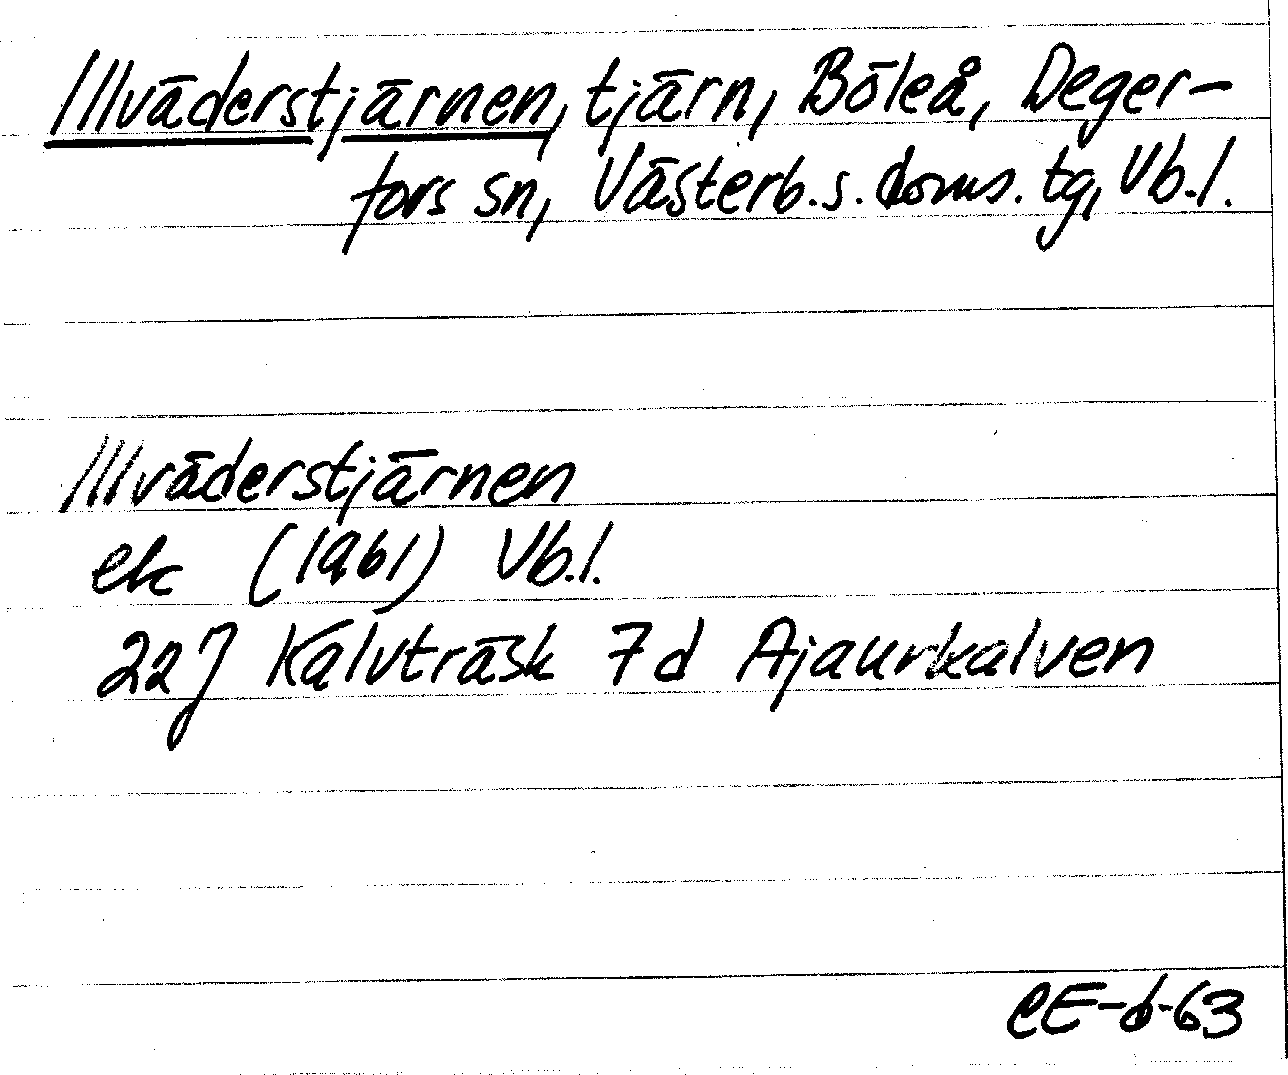 Illväderstjärnen, tjärn, Böleå, Deger-
fors sn, Västerb.s. doms. tg, Vb.l.
Illväderstjärnen
ek (1961) Vb.l.
22J Kalvträsk 7d Ajaurkalven
CE-d-63